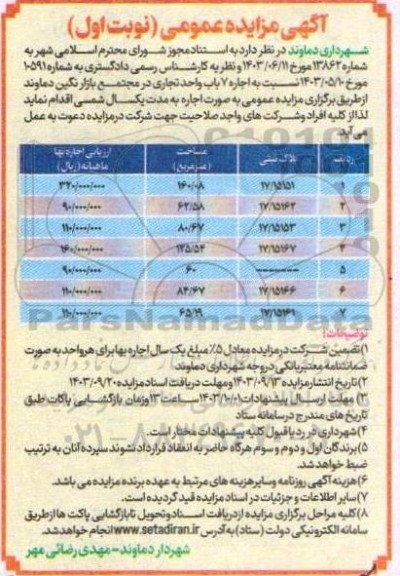 آگهی مزایده عمومی (نوبت اول)
شهرداری دماوند در نظر دارد به استناد مجوز شورای محترم اسلامی شهر به
شماره ۱۳۸۶۲ مورخ ۱۴۰۳/۰۶/۱۱ و نظریه کارشناس رسمی دادگستری به شماره ۱۰۵۹۱
مورخ ۱۴۰۳/۰۵/۱۰ نسبت به اجاره ۷ باب واحد تجاری در مجتمع بازار نگین دماوند
از طریق برگزاری مزایده عمومی به صورت اجاره به مدت یکسال شمسی اقدام نماید
لذا از کلیه افراد و شرکت های واجد صلاحیت جهت شرکت در مزایده دعوت به عمل
می آید.
ردیف پلاک ثبتی مساحت (مترمربع) ارزیابی اجاره بها ماهیانه (ریال)
۱ ۱۷/۱۵۱۵۱ ۱۶۰/۰۸ ۳۲۰/۰۰۰/۰۰۰
۲ ۱۷/۱۵۱۶۲ ۶۲/۵۸ ۹۰/۰۰۰/۰۰۰
۳ ۱۷/۱۵۱۵۳ ۸۰/۶۷ ۱۱۰/۰۰۰/۰۰۰
۴ ۱۷/۱۵۱۶۷ ۱۲۵/۵۴ ۱۶۰/۰۰۰/۰۰۰
۵ -------- ۶۰ ۹۰/۰۰۰/۰۰۰
۶ ۱۷/۱۵۱۶۶ ۸۴/۶۷ ۱۱۰/۰۰۰/۰۰۰
۷ ۱۷/۱۵۱۶۱ ۶۵/۱۹ ۱۱۰/۰۰۰/۰۰۰
ParsNamadData
توضیحات:
۱) تضمین شرکت در مزایده معادل ۵٪ مبلغ یک سال اجاره بها برای هر واحد به صورت
ضمانتنامه معتبر بانکی در وجه شهرداری دماوند
۲) تاریخ انتشار مزایده ۱۴۰۳/۰۹/۱۳ و مهلت دریافت اسناد مزایده ۱۴۰۳/۰۹/۲۰
۳) مهلت ارسال پیشنهادات ۱۴۰۳/۱۰/۰۱ ساعت ۱۳ و زمان بازگشایی پاکات طبق
تاریخ های مندرج در سامانه ستاد
۴) شهرداری در رد یا قبول کلیه پیشنهادات مختار است.
۵) برندگان اول و دوم و سوم هرگاه حاضر به انعقاد قرارداد نشوند سپرده آنان به ترتیب
ضبط خواهد شد.
۶) هزینه آگهی روزنامه و سایر هزینه های مرتبط به عهده برنده مزایده می باشد.
۷) سایر اطلاعات و جزئیات در اسناد مزایده قید گردیده است.
۸) کلیه مراحل برگزاری مزایده از دریافت اسناد و تحویل تا بازگشایی پاکت ها از طریق
سامانه الکترونیکی دولت (ستاد) به آدرس www.setadiran.ir انجام خواهد شد.
شهردار دماوند - مهدی رضائی مهر